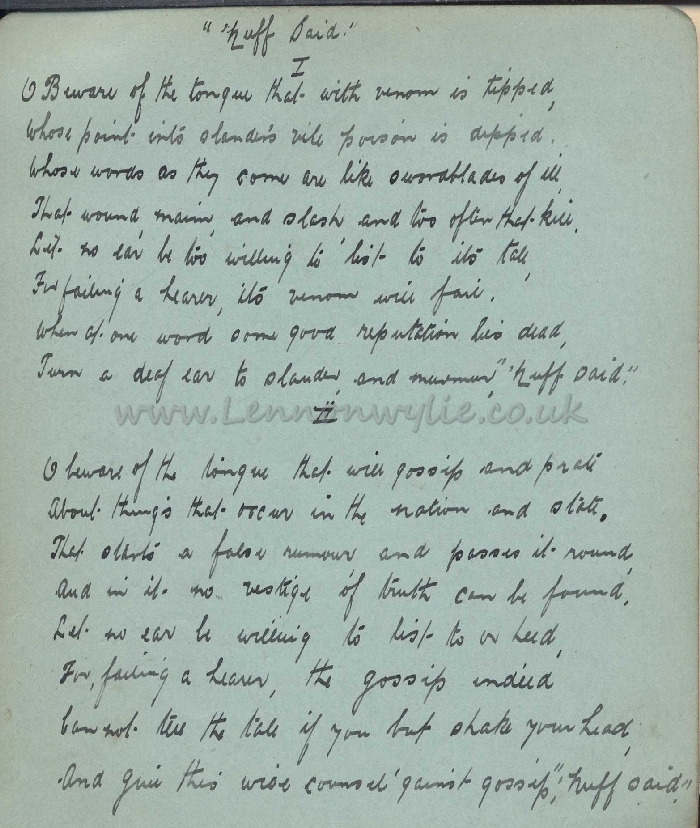 "'Nuff Said."
I
O Beware of the tongue that with venom is tipped,
Whose point into slander's vile poison is dipped.
Whose words as they come are like swordblades of ill,
That wound, maim, and slash and too often that kill.
Let no ear be too willing to 'list to its tale,
For failing a hearer, its venom will fail.
When at one word some good reputation lies dead,
Turn a deaf ear to slander, and murmur, "'Nuff said."
www.Lennonwylie.co.uk
II
O beware of the tongue that will gossip and prate
About things that occur in the nation and state.
That starts a false rumour and passes it round,
And in it no vestige of truth can be found.
Let no ear be willing to list to or heed,
For, failing a hearer, the gossip indeed
Can not tell the tale if you but shake your head,
And give this wise counsel 'gainst gossip, "'Nuff said."